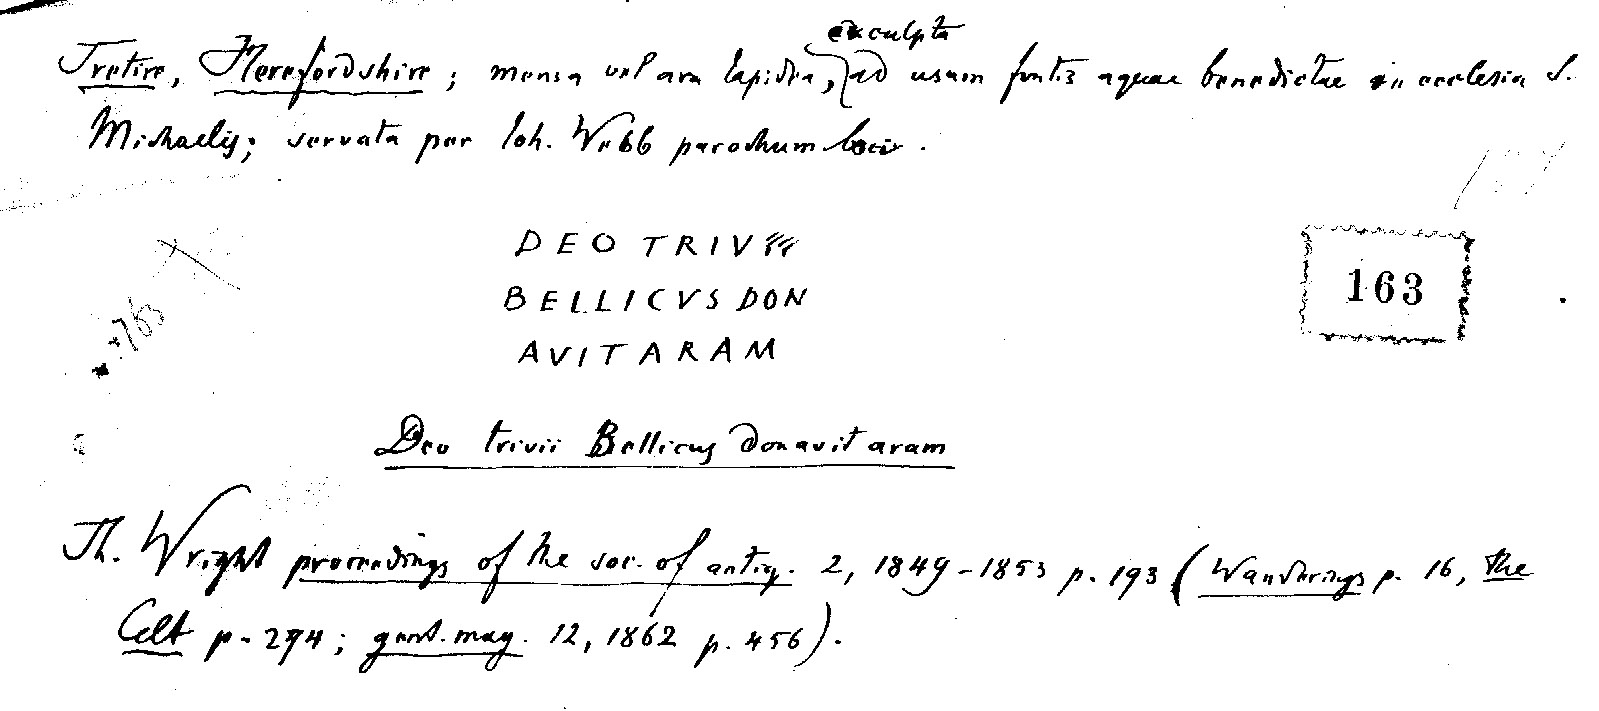 exculpta
Tretire, Herefordshire; mensa vel ara lapidea, ad usum fontis aquae benedictae in ecclesia S.
Michaelis; servata per Ioh. Webb parochum loci.
DEO TRIV
BELLICVS DON
163
AVITARAM
763
Deo trivii Bellicus donavit aram
Th. Wright proceedings of the soc. of antiq. 2, 1849-1853 p. 193 (Wanderings p. 16, the
Celt p. 294; gent. mag. 12, 1862 p. 456).